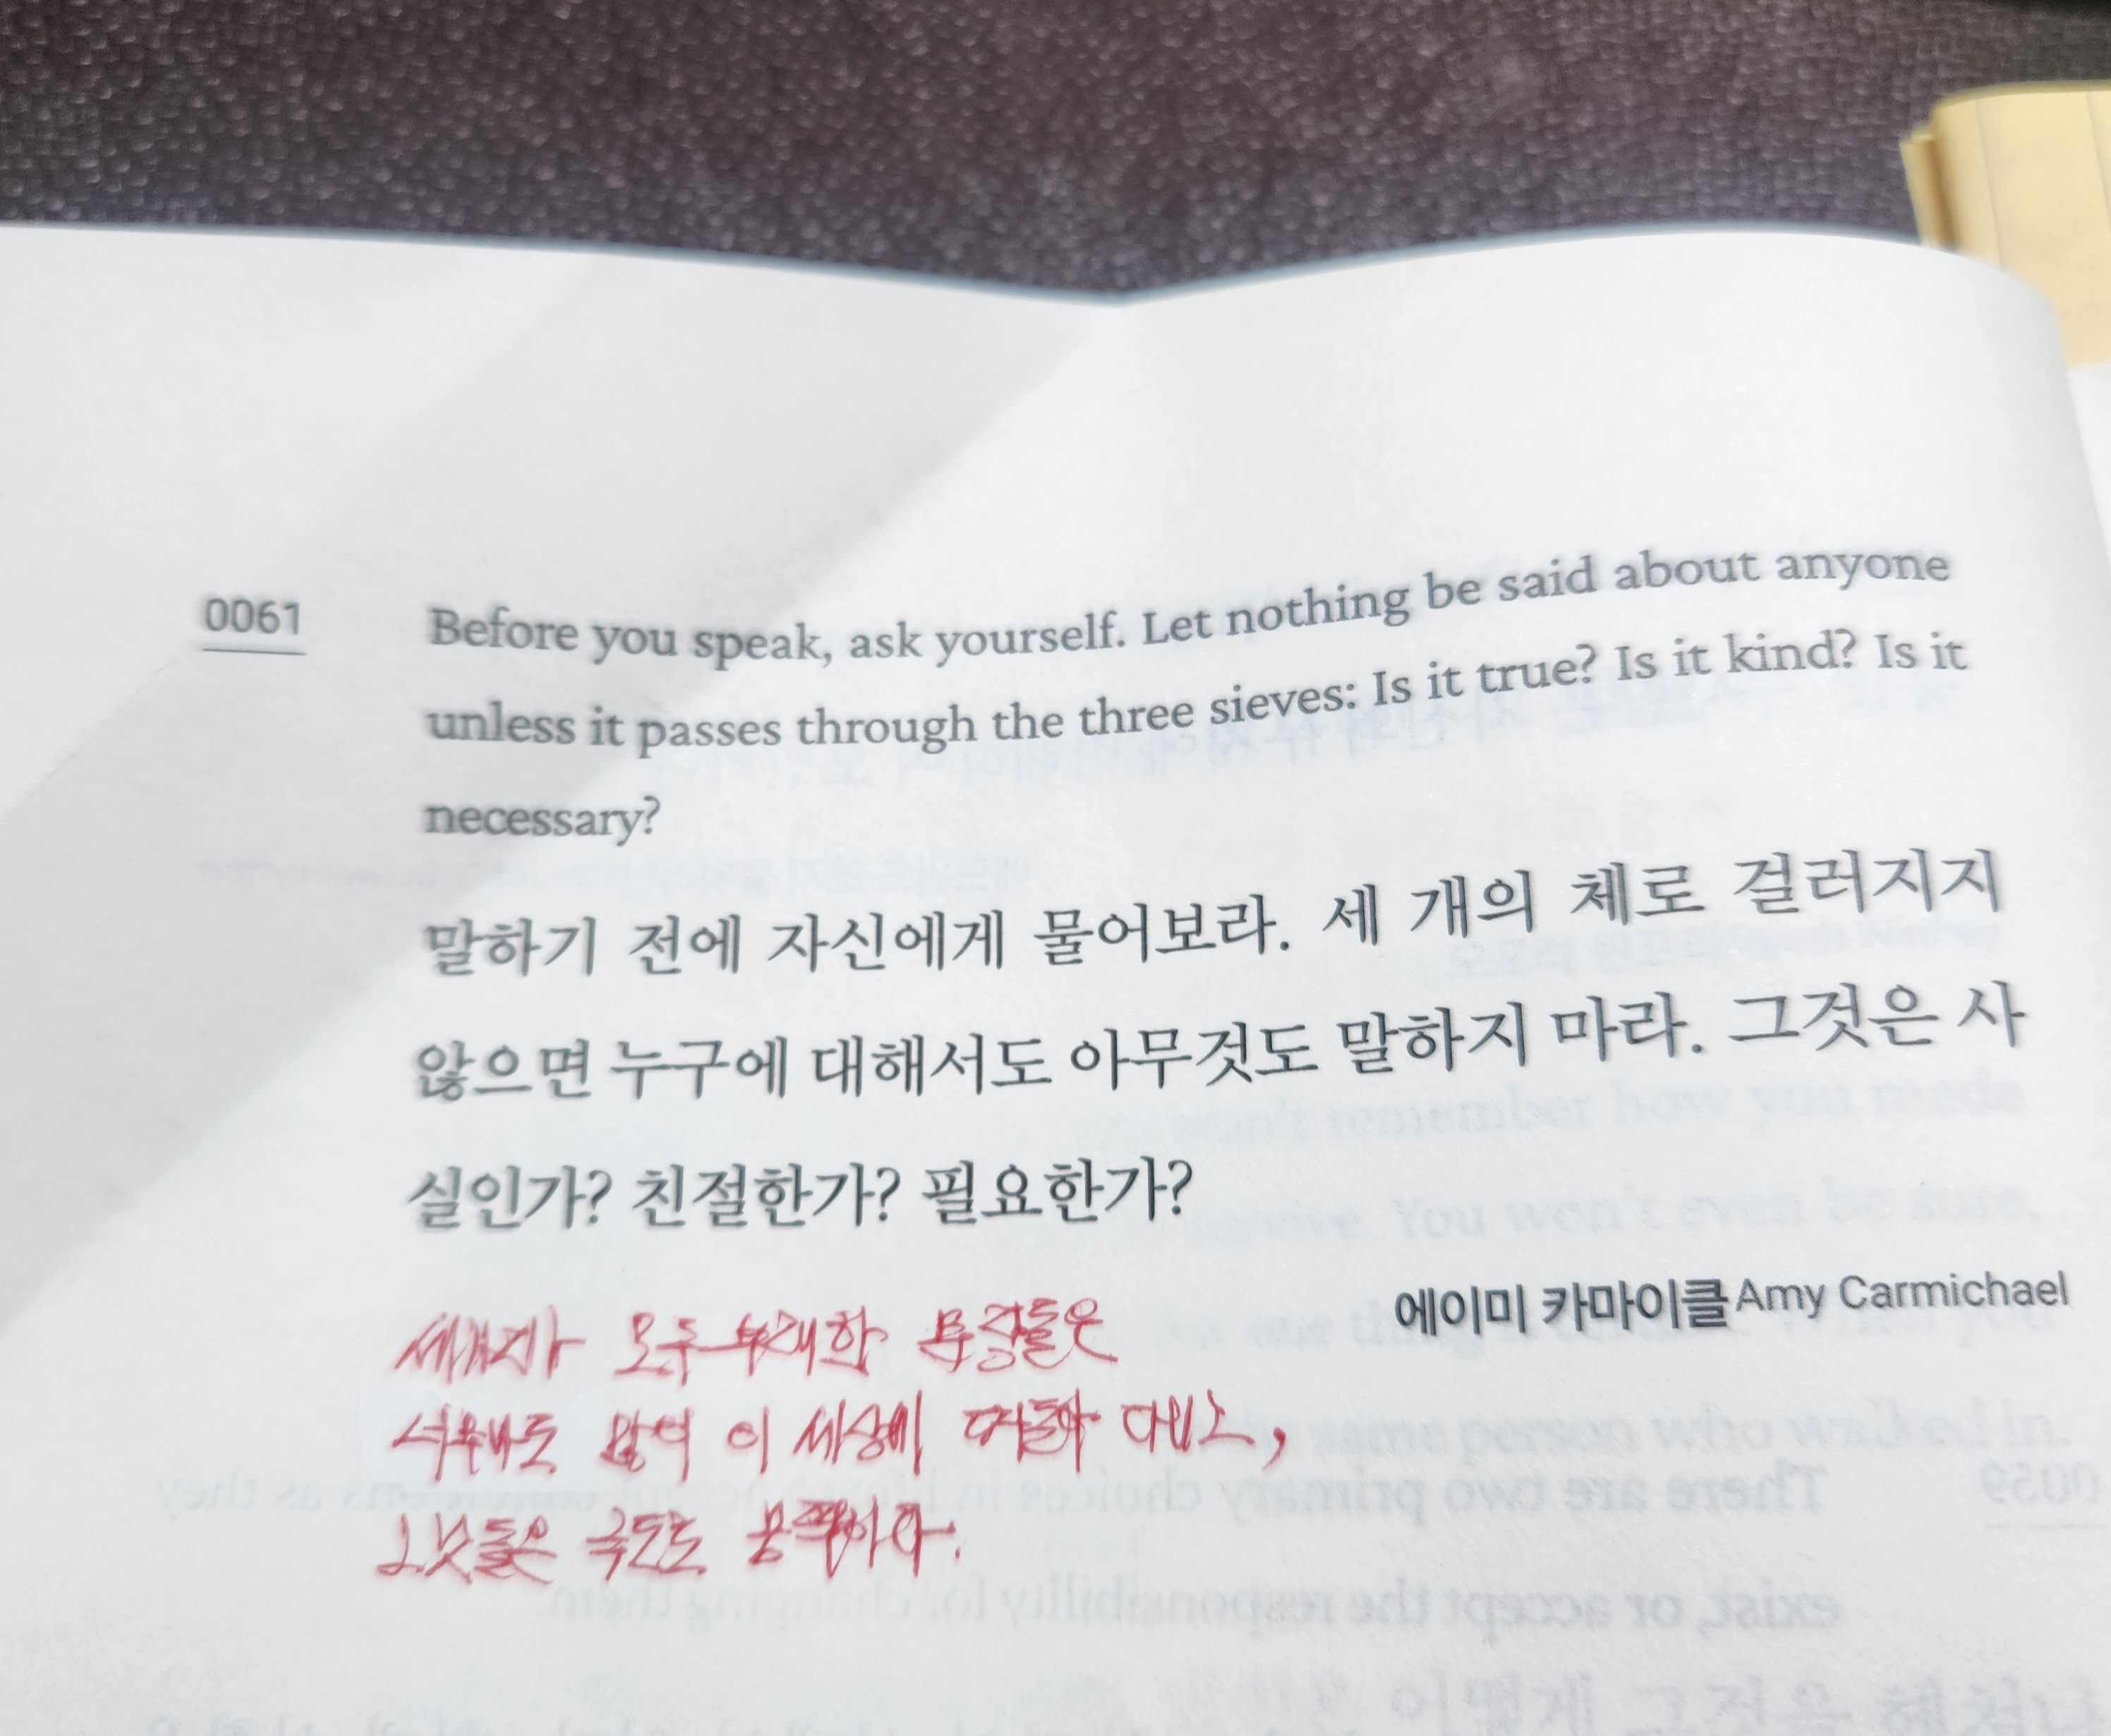 0061
Before you speak, ask yourself. Let nothing be said about anyone
unless it passes through the three sieves: Is it true? Is it kind? Is it
necessary?
말하기 전에 자신에게 물어보라. 세 개의 체로 걸러지지
않으면 누구에 대해서도 아무것도 말하지 마라. 그것은 사
실인가? 친절한가? 필요한가?
에이미 카마이클 Amy Carmichael
세가지가 모두 부재한 문장들은
너무나도 많이 이 세상에 떠돌아 다니고,
그것들은 극도로 끔찍하다.